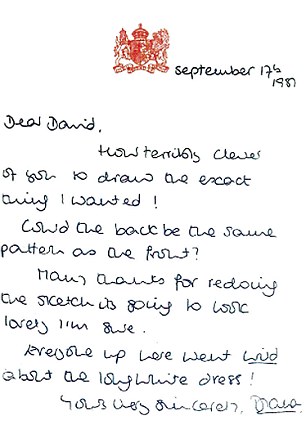 September 17th
1987
Dear David,
How terribly clever
of you to draw the exact
thing I wanted!
Could the back be the same
pattern as the front?
Many thanks for redoing
the sketch its going to look
lovely I'm sure.
Everyone up here went wild
about the long white dress!
Yours very sincerely, Diana